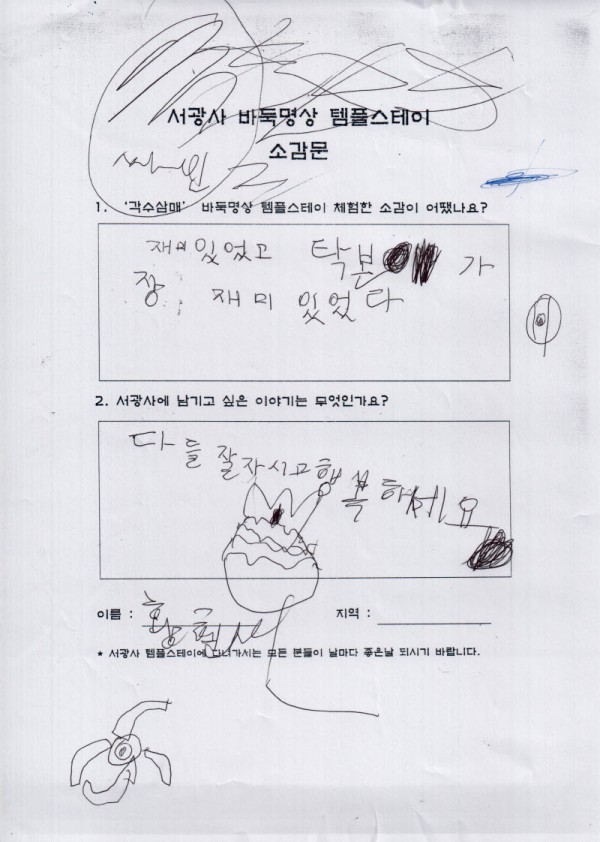 서광사 바둑명상 템플스테이
소감문
싸인
1. '각수삼매' 바둑명상 템플스테이 체험한 소감이 어땠나요?
재미있었고 탁본 가
장 재미 있었다
2. 서광사에 남기고 싶은 이야기는 무엇인가요?
다들 잘자시고 행복하세요
이름 : 지역 :
* 서광사 템플스테이에 다녀가시는 모든 분들이 날마다 좋은날 되시기 바랍니다.